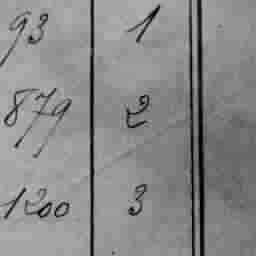 93 1
879 2
1200 3